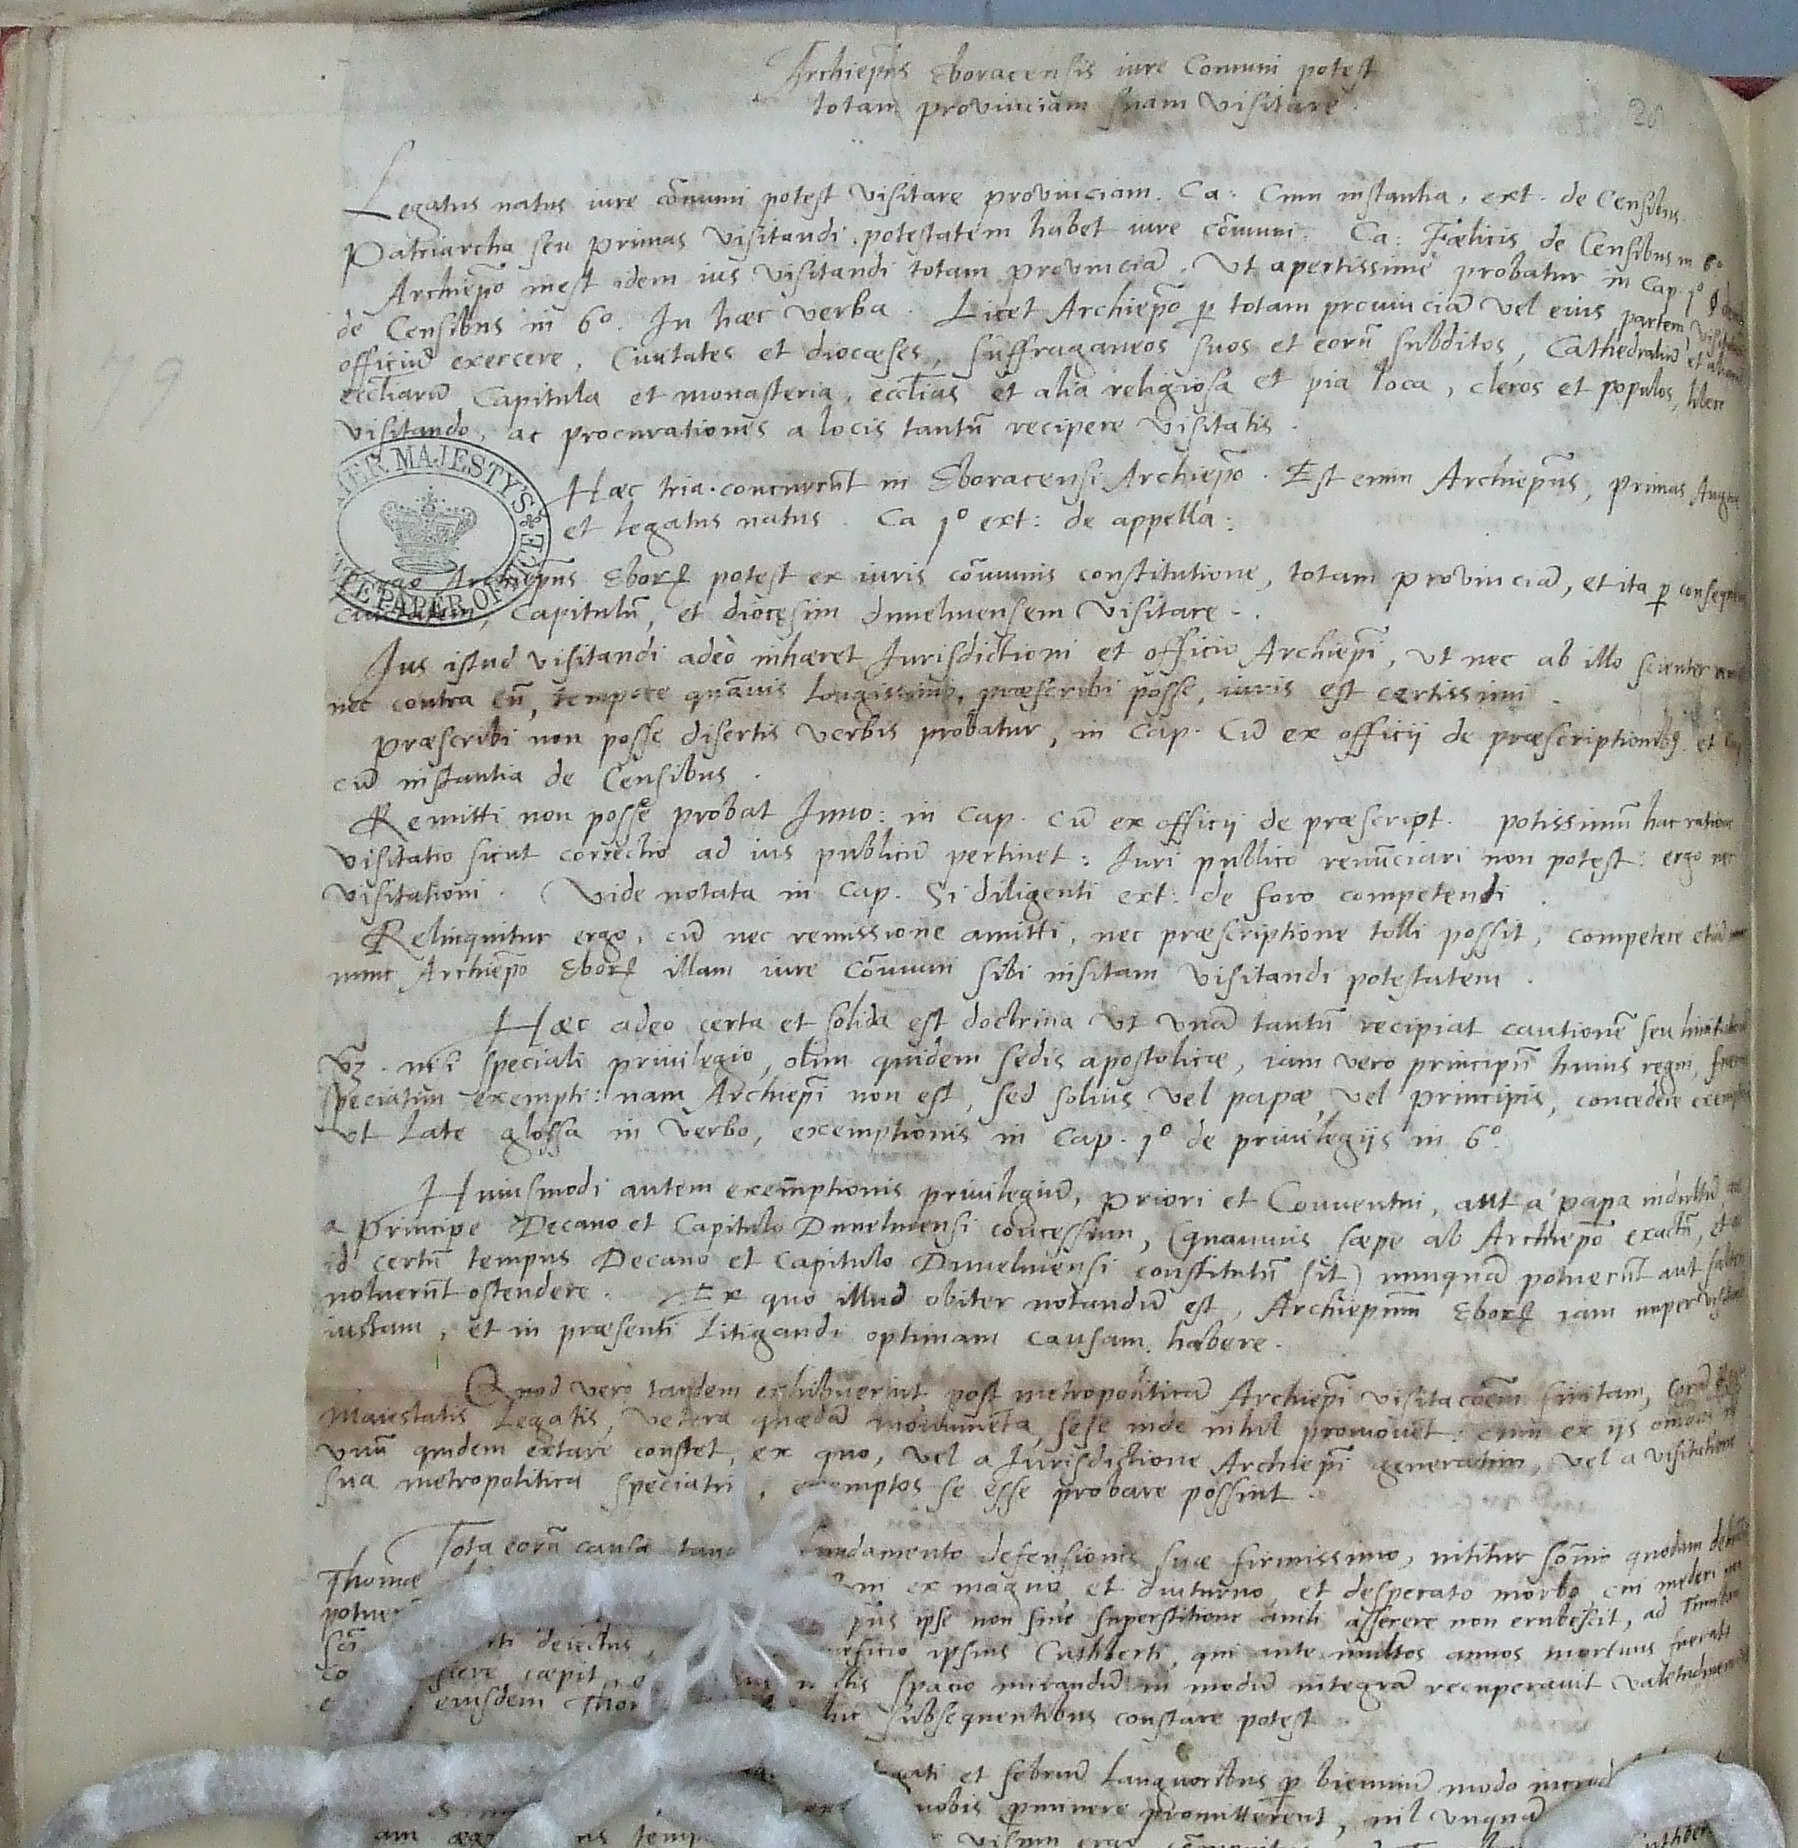 Archiep̃us Eboracensis iure Comuni potest
totam provinciam suam visitare.
28
Legatus natus iure cõmuni potest visitare provinciam. Ca: Cum instantia, ext. de Censibus.
Patriarcha seu Primas visitandi potestatem habet iure cõmuni. Ca: Fœlicis de Censibus in 6o
Archiep̃o inest idem ius visitandi totam provinciã. Ut apertissimè probatur in Cap. 1o
de Censibus in 6o. In hæc verba. Licet Archiep̃o p totam provinciã vel eius partem
officiũ exercere, Civitates et diocæses, suffraganeos suos et eorũ subditos, Cathedraliũ et
eccliarũ Capitula et monasteria, ecclias et alia religiosa et pia loca, cleros et populos, libere
visitando, ac procurationes a locis tantũ recipere visitatis.
Hæc tria concurrũt in Eboracensi Archiep̃o. Est enim Archiep̃us, Primas
et legatus natus. Ca 1o ext: de appella:
HER MAJESTY'S
PAPER OFFICE
Ergo Archiep̃us Ebor potest ex iuris cõmunis constitutione, totam provinciã, et ita p
Civitatem, Capitulũ, et diocęsim dunelmensem visitare.
Ius istud visitandi adeò inhæret Jurisdictioni et officio Archiep̃i, ut nec ab illo scienter
nec contra eũ, tempore quãvis longissimo, præscribi posse, iuris est certissimi.
Præscribi non posse disertis verbis probatur, in Cap. Cũ ex officij de præscriptionibq et
cũ instantia de Censibus.
Remitti non posse probat Inno: in Cap. Cũ ex officij de præscript. potissimũ hac ratione
visitatio sicut correctio ad ius publicũ pertinet: Iuri publico renũciari non potest: ergo nec
visitationi. Vide notata in Cap. Si diligenti ext: de foro competendi.
Relinquitur ergo, cũ nec remissione amitti, nec præscriptione tolli possit, competere etiã
nunc Archiep̃o Ebor illam iure Cõmuni sibi insitam visitandi potestatem.
Hæc adeo certa et solida est doctrina ut unã tantũ recipiat cautionẽ seu
vz. nisi speciali privilegio, olim quidem sedis apostolicæ, iam vero principũ huius regni,
speciatim exempti: nam Archiep̃i non est, sed solius vel papæ, vel Principis, concedere
ut Late glossa in verbo, exemptionis in Cap. 1o de privilegijs in 6o
Huiusmodi autem exem̃ptionis privilegiũ, Priori et Conventui, aut a papa indultũ,
a Principe Decano et Capitulo Dunelmensi concessum, (quamvis sæpe ab Archiep̃o exactũ, et
id certũ tempus Decano et Capitulo Dunelmensi constitutũ sit) nunquã potuerũt aut saltem
noluerũt ostendere. Ex quo illud obiter notandũ est, Archiepum̃ Ebor iam nuper
iustam, et in præsenti Litigandi optimam causam habere.
Quod vero tandem exhibuerint post metropoliticã Archiep̃i visitacõem finitam, Corã
Maiestatis Legatis, vetera quædã monumẽta, sese inde nihil promovẽt: cum ex ijs
unũ quidem extare constet, ex quo, vel a Jurisdictione Archiep̃i generatim, vel a visitatione
sua metropolitica speciatĩ, exemptos se esse probare possint.
Tota eorũ causa fundamento defensionis suæ firmissimo, nititur sõmio quodam
Thomæ ex magno et diuturno et desperato morbo cui mederi non
ipse non sine superstitione anili asserere non erubescit, ad
deiectus, ipsius Cuthberti, qui ante multos annos mortuus fuerat
cæpit, spacio mirandũ in modũ integrã recuperavit valetudinem
eiusdem subsequentibus constare potest.
et febriũ languoribus p biennium modo
nobis pminere promitterent, nil unquã
visum ergo